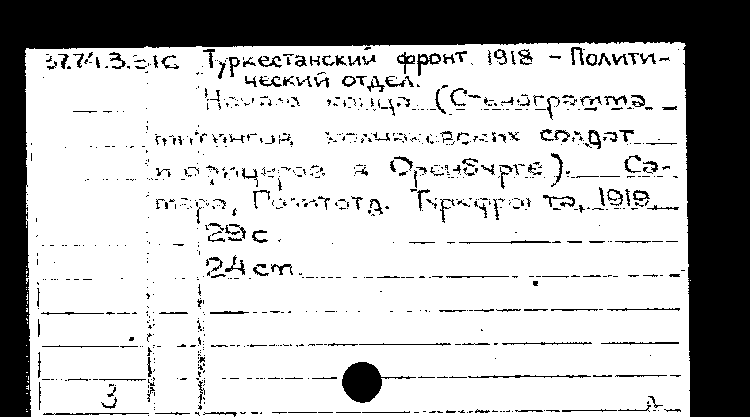 3774.3.31С Туркестанский фронт. 1918 – Полити-
ческий отдел.
Начало конца (Стенограмма
митингов колчаковских солдат
и офицеров в Оренбурге). Са-
мара, Политотд. Туркфронта, 1919.
29 с.
24 cm.
3